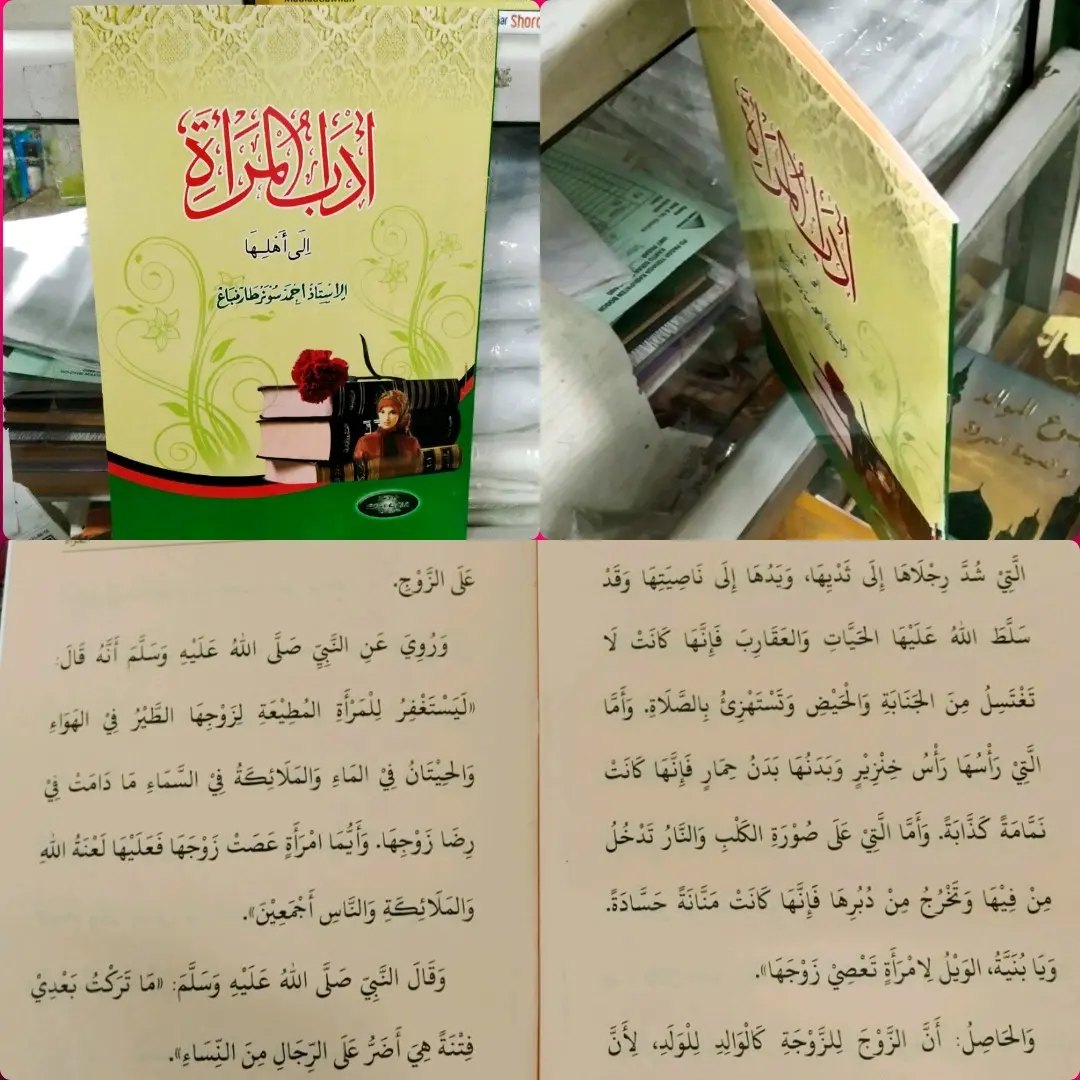 ar Shorc
أدب المرأة
إلى أهلها
الأستاذ أحمد سونرطا رمباغ
أدب المرأة
الَّتِيْ شُدَّ رِجْلَاهَا إِلَى ثَدْيِهَا، وَيَدُهَا إِلَى نَاصِيَتِهَا وَقَدْ
سَلَّطَ اللهُ عَلَيْهَا الحَيَّاتِ وَالعَقَارِبَ فَإِنَّهَا كَانَتْ لَا
تَغْتَسِلُ مِنَ الجَنَابَةِ وَالْحَيْضِ وَتَسْتَهْزِئُ بِالصَّلَاةِ. وَأَمَّا
الَّتِيْ رَأْسُهَا رَأْسُ خِنْزِيْرٍ وَبَدَنُهَا بَدَنُ حِمَارٍ فَإِنَّهَا كَانَتْ
نَمَّامَةً كَذَّابَةً. وَأَمَّا الَّتِيْ عَلَى صُوْرَةِ الكَلْبِ وَالنَّارُ تَدْخُلُ
مِنْ فِيْهَا وَتَخْرُجُ مِنْ دُبُرِهَا فَإِنَّهَا كَانَتْ مَنَّانَةً حَسَّادَةً.
وَيَا بُنَيَّةُ، الوَيْلُ لِامْرَأَةٍ تَعْصِيْ زَوْجَهَا».
وَالحَاصِلُ: أَنَّ الزَّوْجَ لِلزَّوْجَةِ كَالْوَالِدِ لِلْوَلَدِ، لِأَنَّ
عَلَى الزَّوْجِ.
وَرُوِيَ عَنِ النَّبِيِّ صَلَّى اللهُ عَلَيْهِ وَسَلَّمَ أَنَّهُ قَالَ:
«لَيَسْتَغْفِرُ لِلْمَرْأَةِ المُطِيْعَةِ لِزَوْجِهَا الطَّيْرُ فِيْ الهَوَاءِ
وَالحِيْتَانُ فِيْ المَاءِ وَالمَلَائِكَةُ فِيْ السَّمَاءِ مَا دَامَتْ فِيْ
رِضَا زَوْجِهَا. وَأَيُّمَا امْرَأَةٍ عَصَتْ زَوْجَهَا فَعَلَيْهَا لَعْنَةُ اللهِ
وَالمَلَائِكَةِ وَالنَّاسِ أَجْمَعِيْنَ».
وَقَالَ النَّبِيّ صَلَّى اللهُ عَلَيْهِ وَسَلَّمَ: «مَا تَرَكْتُ بَعْدِيْ
فِتْنَةً هِيَ أَضَرُّ عَلَى الرِّجَالِ مِنَ النِّسَاءِ».